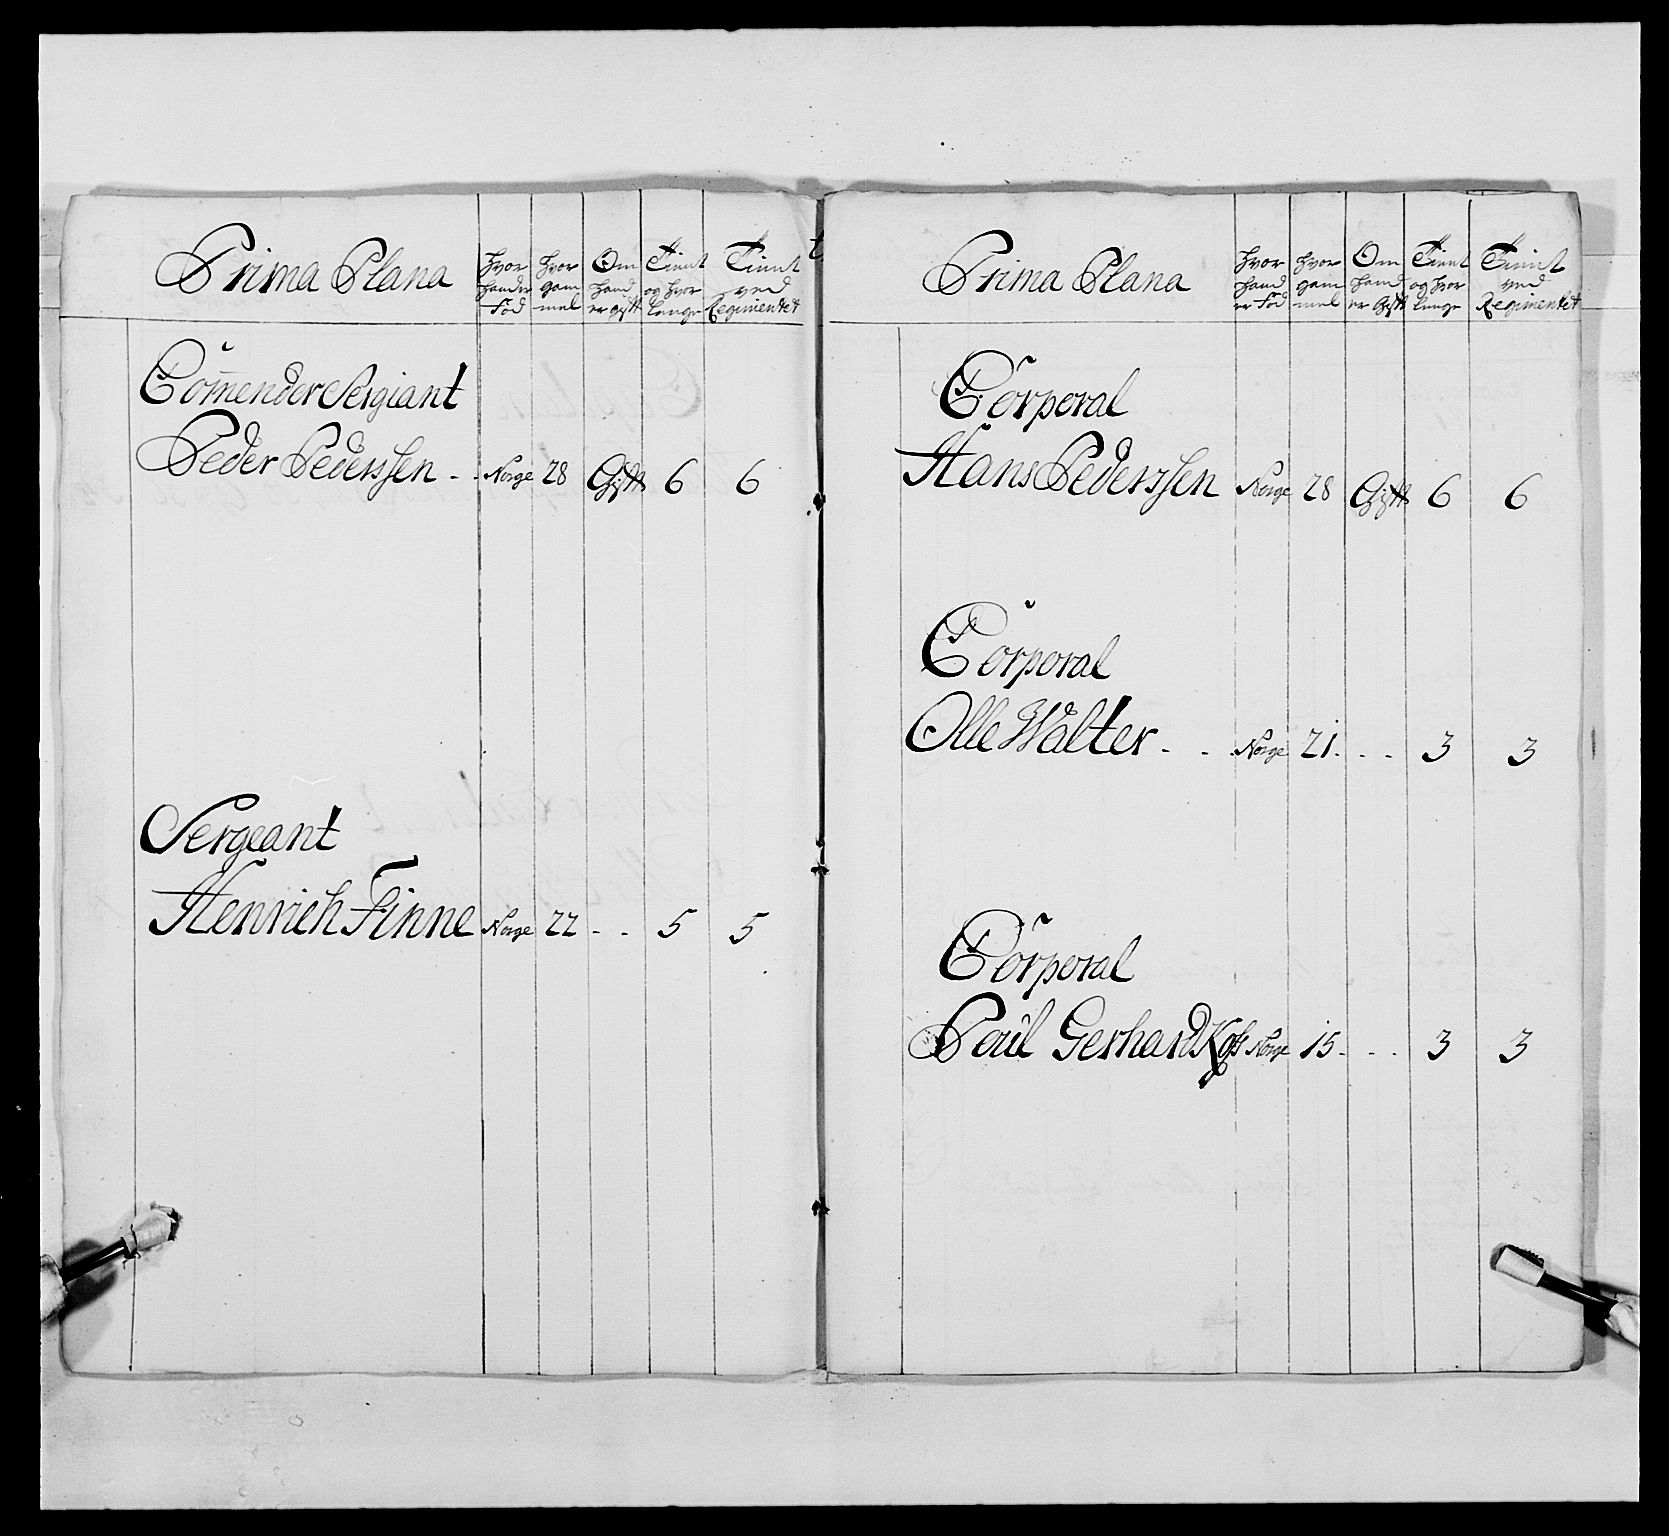 Prima Plana
hvor hand er Fød
hvor gam mel
Om hand er Gift
Tient og hvor lenge
Tient ved Regimentet
Comender Sergiant
Peder Pederssen - - Norge 28 Gift 6 6
Sergeant
Henrich Finne Norge 22 - - 5 5
Prima Plana
hvor hand er Fød
hvor gam mel
Om hand er Gift
Tient og hvor lenge
Tient ved Regimentet
Corporal
Hans Pederssen Norge 28 Gift 6 6
Corporal
Olle Walter - - Norge 21 - - - 3 3
Corporal
Poul Gerhard Norge 15 - - - 3 3